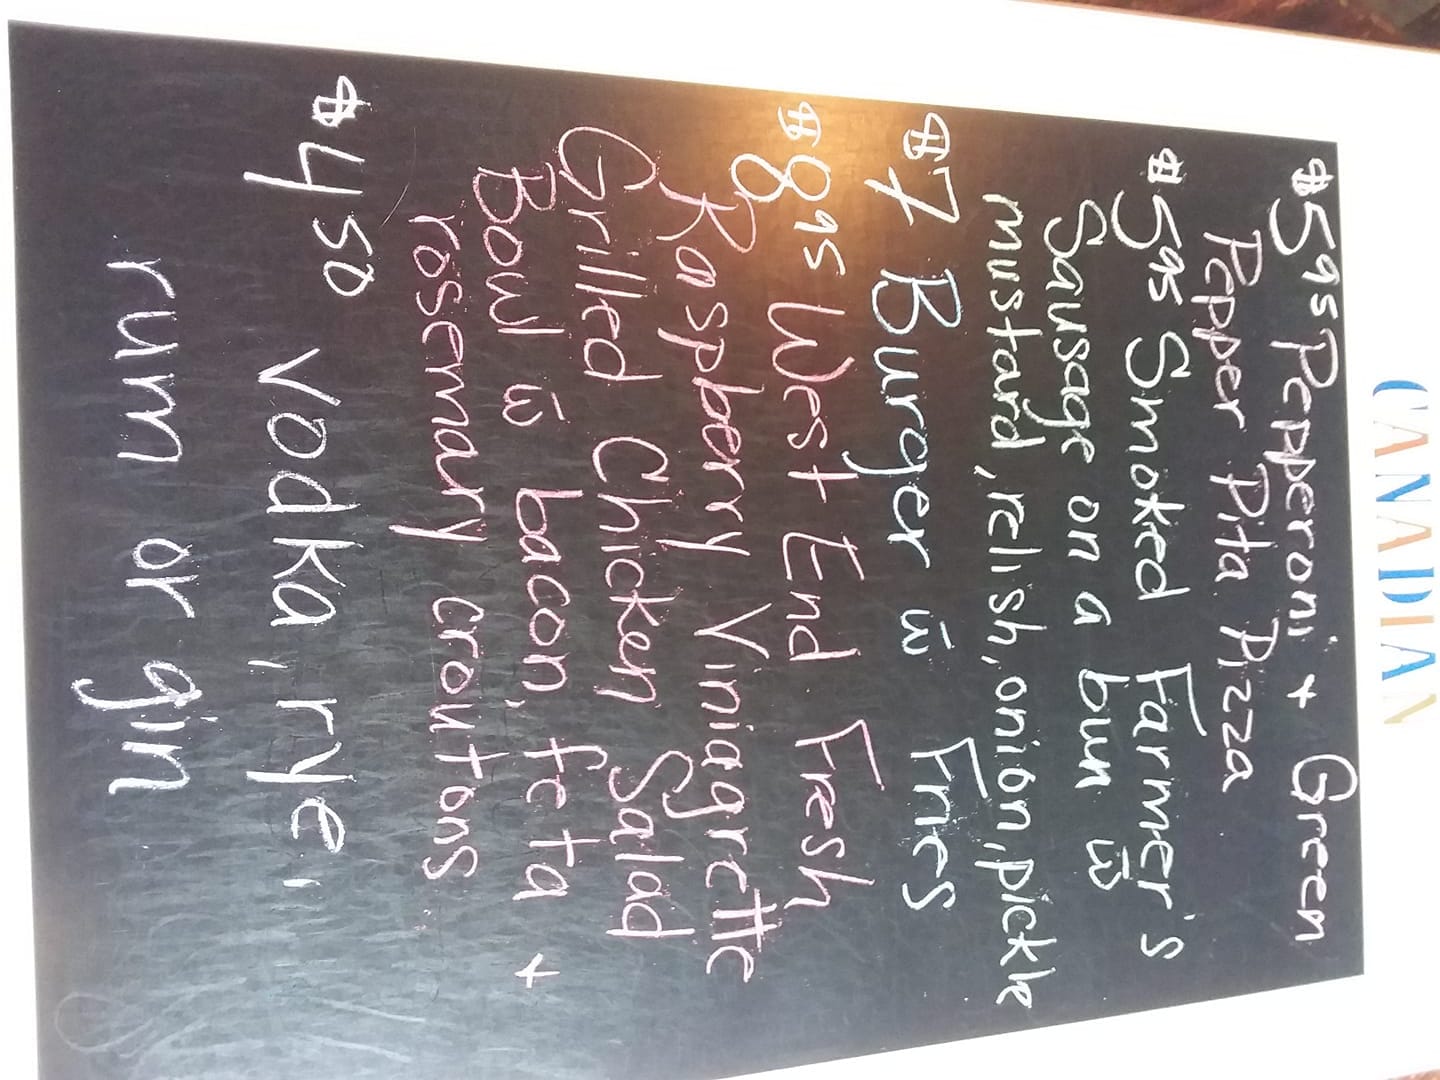 CANADIAN
$5.95 Pepperoni + Green
Pepper Pita Pizza
$5.95 Smoked Farmer's
Sausage on a bun w̄
mustard, relish, onion, pickle
$7 Burger w̄ Fries
$8.95 West End Fresh
Raspberry Viniagrette
Grilled Chicken Salad
Bowl w̄ bacon, feta +
rosemary croutons
$4.50 vodka, rye,
rum or gin